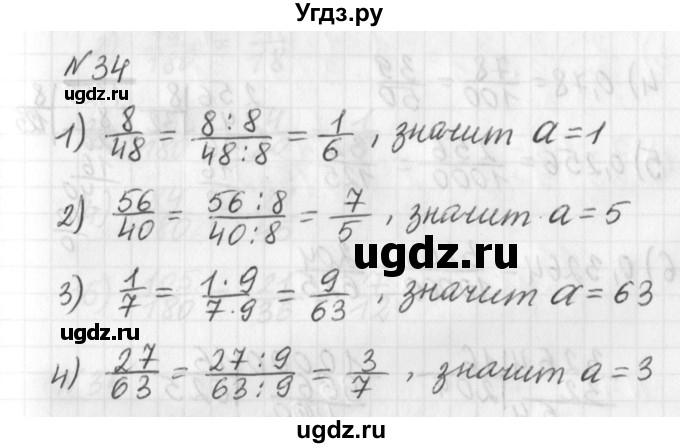 Угдз.ру
№34
ugdz.ru
1) 8/48 = 8:8/48:8 = 1/6, значит a=1
2) 56/40 = 56:8/40:8 = 7/5, значит a=5
ugdz.ru
3) 1/7 = 1·9/7·9 = 9/63, значит a=63
4) 27/63 = 27:9/63:9 = 3/7, значит a=3
ugdz.ru
ugdz.ru
ugdz.ru